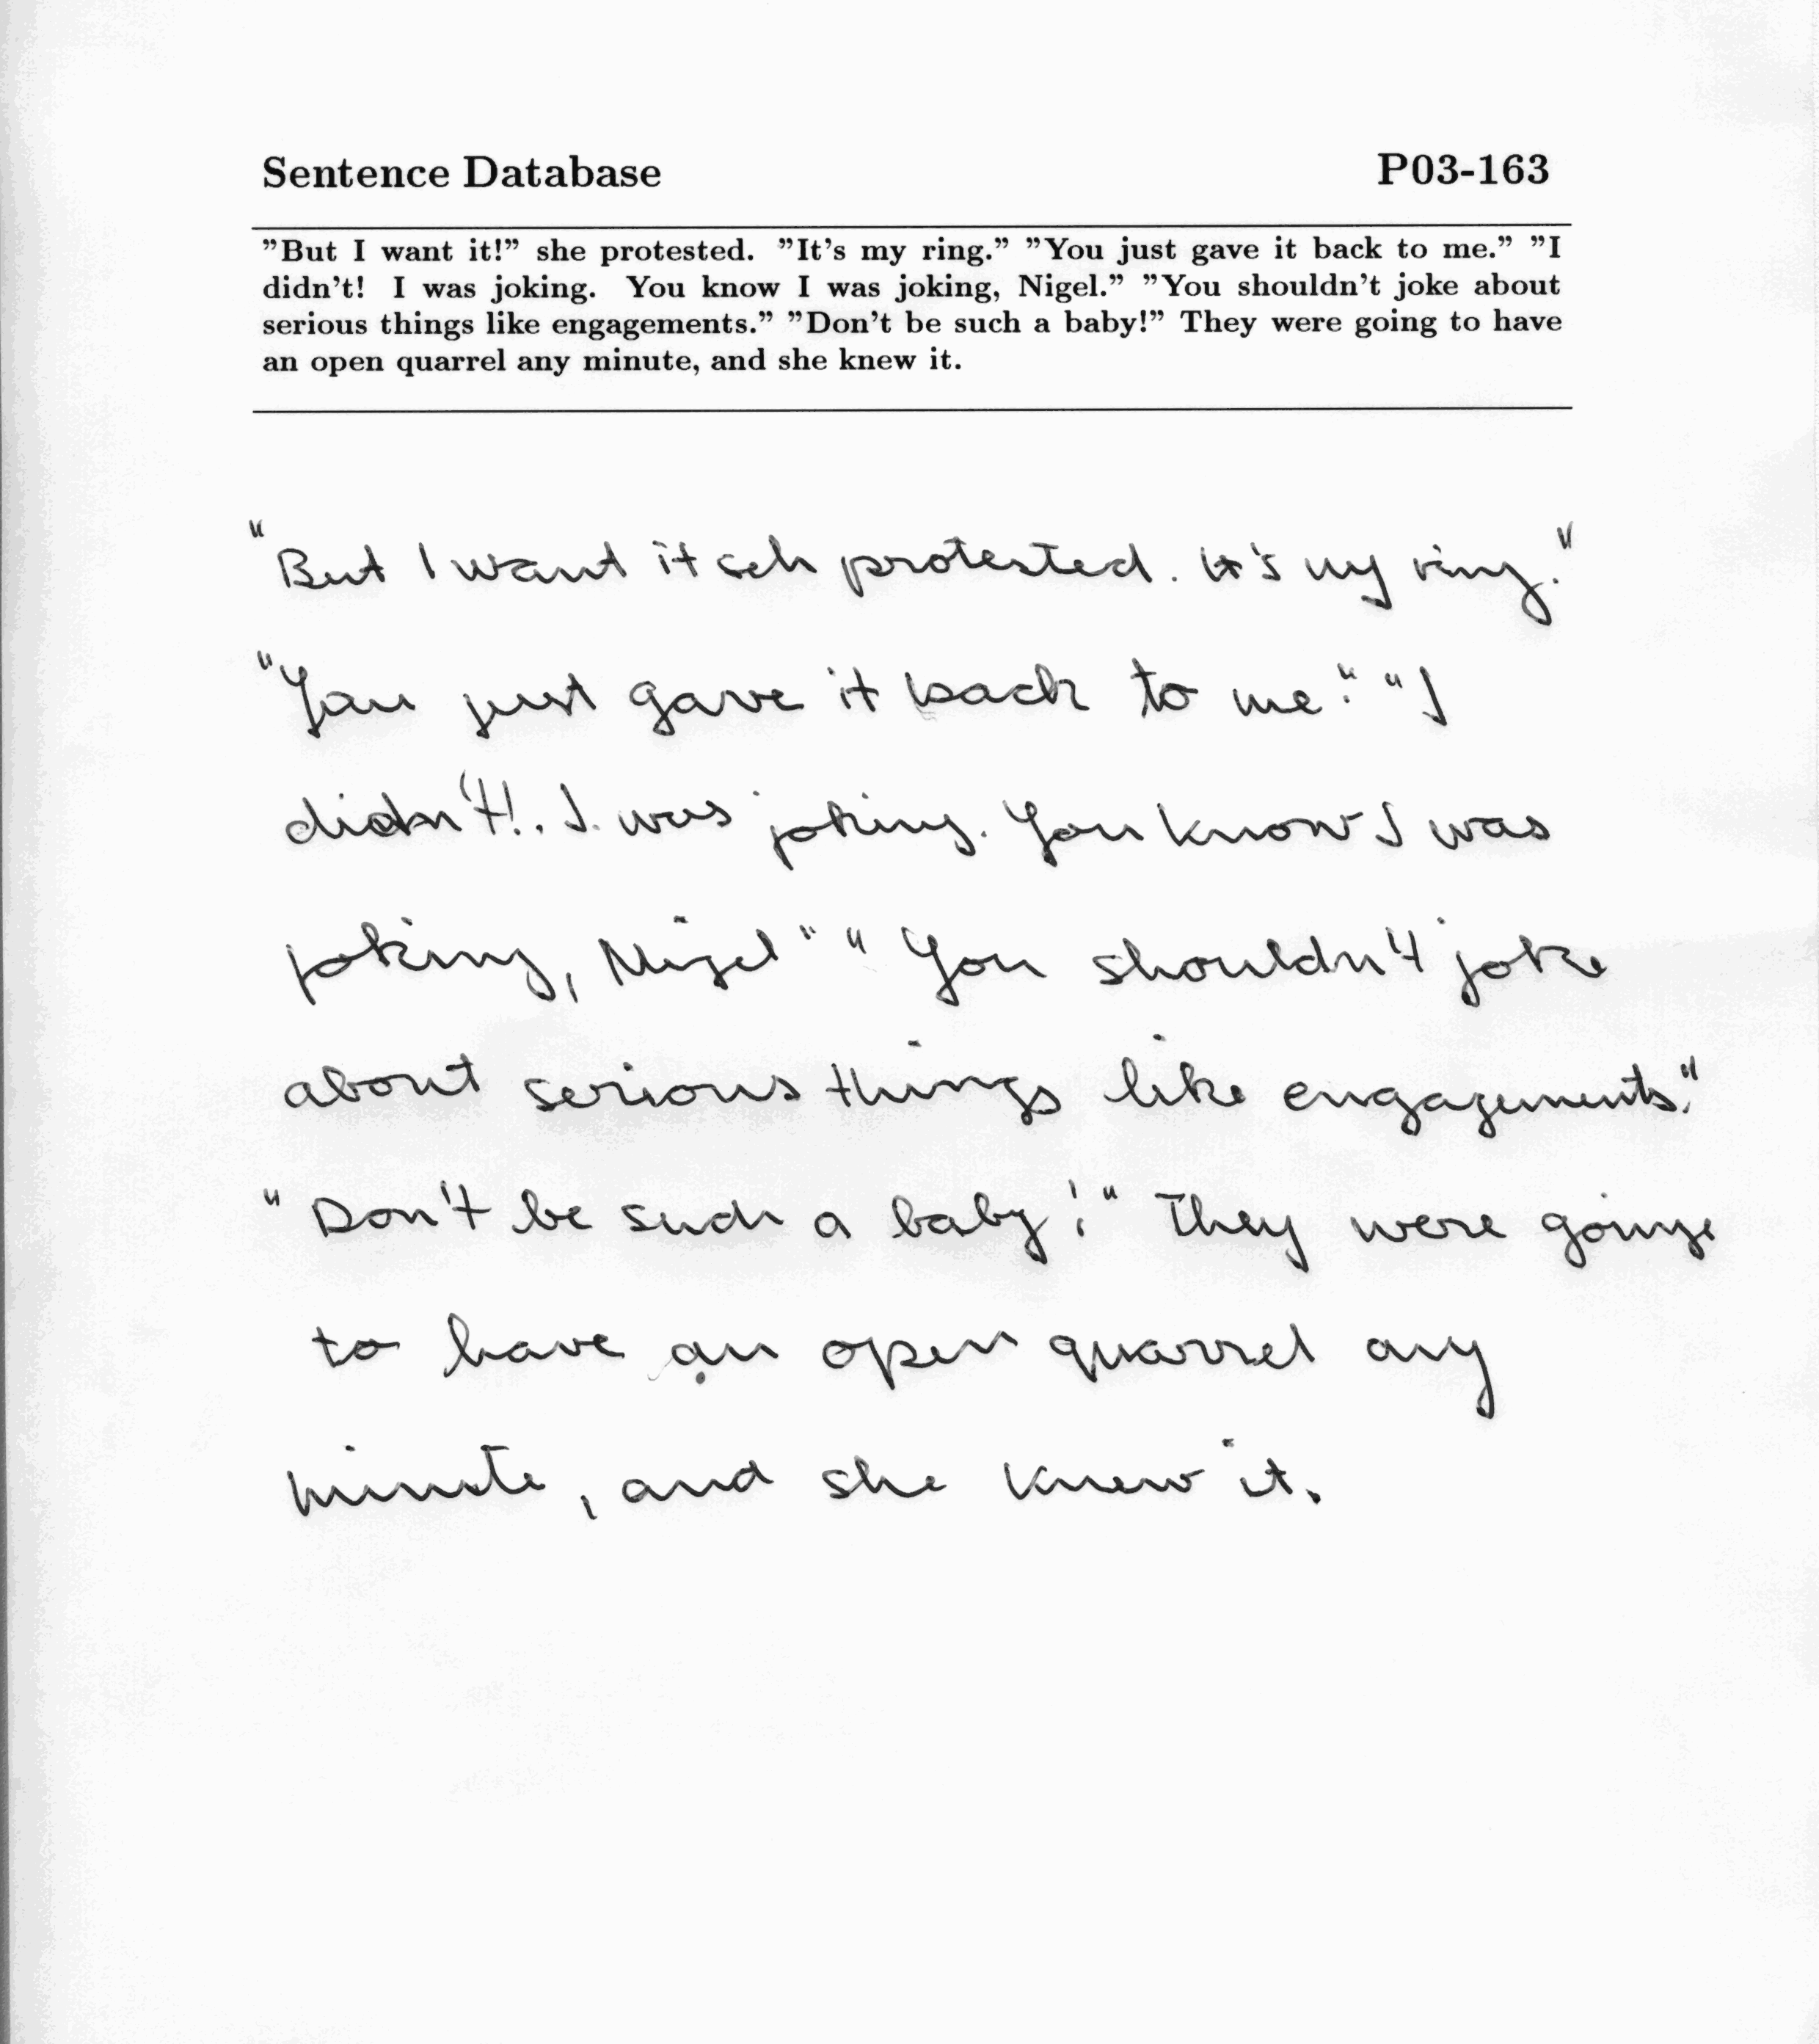 Sentence Database P03-163
"But I want it!" she protested. "It's my ring." "You just gave it back to me." "I
didn't! I was joking. You know I was joking, Nigel." "You shouldn't joke about
serious things like engagements." "Don't be such a baby!" They were going to have
an open quarrel any minute, and she knew it.
"But I want it seh protested. It's my ring."
"You just gave it back to me." "I
didn't!. I. was joking. You know I was
joking, Nigel" "You shouldn't joke
about serious things like engagements."
"Don't be such a baby!" They were going
to have an open quarrel any
minute, and she knew it.